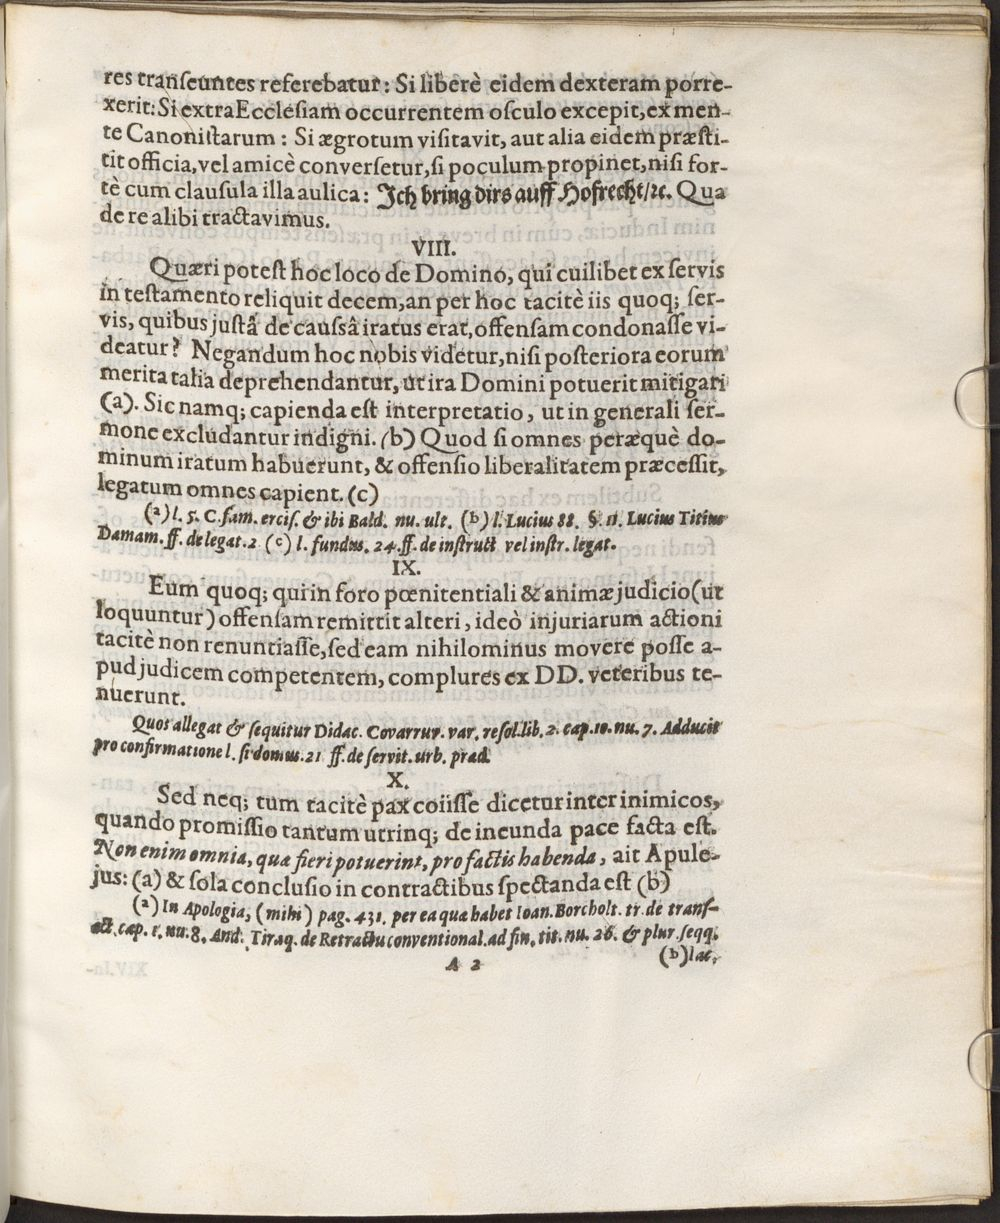 res tranſeuntes referebatur: Si liberè eidem dexteram porre-
xerit: Si extra Eccleſiam occurrentem oſculo excepit, ex men-
te Canoniſtarum: Si ægrotum viſitavit, aut alia eidem præſti-
tit officia, vel amicè converſetur, ſi poculum propinet, niſi for-
tè cum clauſula illa aulica: Ich bring dirs auff Hofrecht/ꝛc. Qua
de re alibi tractavimus.
VIII.
Quæri poteſt hoc loco de Domino, qui cuilibet ex ſervis
in teſtamento reliquit decem, an per hoc tacitè iis quoq; ſer-
vis, quibus juſtâ de cauſsâ iratus erat, offenſam condonaſſe vi-
deatur? Negandum hoc nobis videtur, niſi poſteriora eorum
merita talia deprehendantur, ut ira Domini potuerit mitigari
(a). Sic namq; capienda eſt interpretatio, ut in generali ſer-
mone excludantur indigni. (b) Quod ſi omnes peræquè do-
minum iratum habuerunt, & offenſio liberalitatem præceſſit,
legatum omnes capient. (c)
(a) l. 5. C. fam. erciſ. & ibi Bald. nu. ult. (b) l. Lucius 88. §. 11. Lucius Titius
Damam. ff. de legat. 2 (c) l. fundus. 24. ff. de inſtruct vel inſtr. legat.
IX.
Eum quoq; qui in foro pœnitentiali & animæ judicio (ut
loquuntur) offenſam remittit alteri, ideò injuriarum actioni
tacitè non renuntiaſſe, ſed eam nihilominus movere poſſe a-
pud judicem competentem, complures ex DD. veteribus te-
nuerunt.
Quos allegat & ſequitur Didac. Covarrur. var. reſol. lib. 2. cap. 10. nu. 7. Adducit
pro confirmatione l. ſi domus. 21 ff. de ſervit. urb. præd.
X.
Sed neq; tum tacitè pax coiiſſe dicetur inter inimicos,
quando promiſſio tantum utrinq; de ineunda pace facta eſt.
Non enim omnia, quæ fieri potuerint, pro factis habenda, ait Apule-
jus: (a) & ſola concluſio in contractibus ſpectanda eſt (b)
(a) In Apologia, (mihi) pag. 431. per ea quæ habet Ioan. Borcholt. tr. de tranſ-
act. cap. 1. nu. 8. And. Tiraq. de Retractu conventional. ad fin. tit. nu. 26. & plur. ſeqq.
(b) lac.
A 2